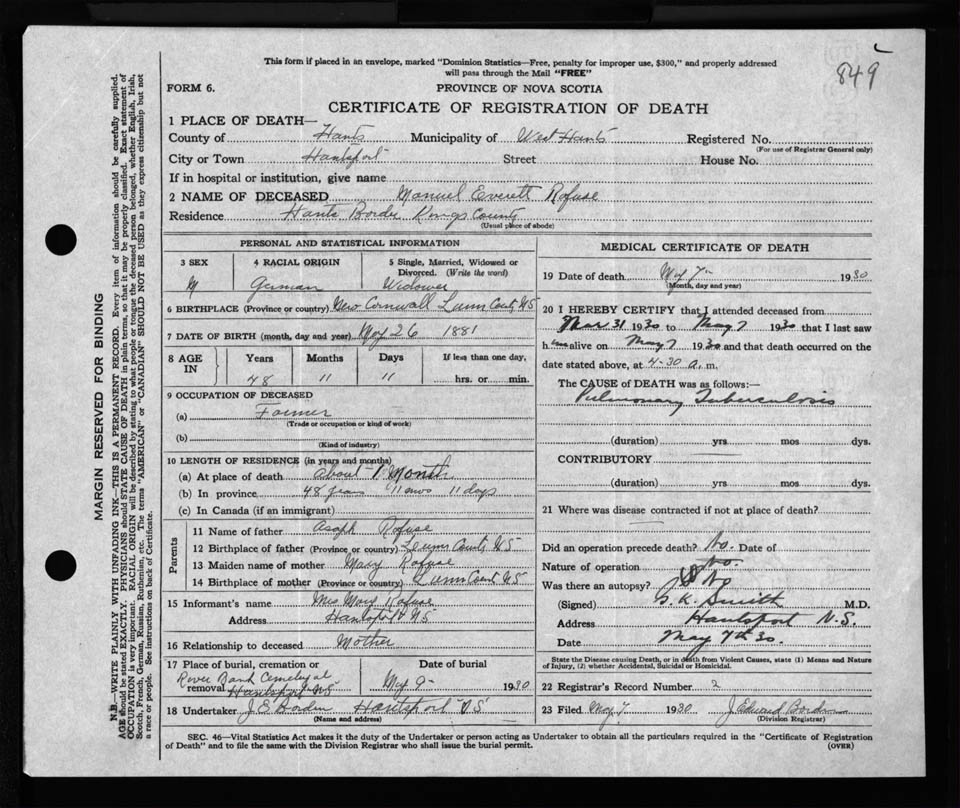 This form if placed in an envelope, marked "Dominion Statistics—Free, penalty for improper use, $300," and properly addressed
will pass through the Mail "FREE"
849
FORM 6.
PROVINCE OF NOVA SCOTIA
CERTIFICATE OF REGISTRATION OF DEATH
1 PLACE OF DEATH—
County of Hants Municipality of West Hants Registered No.
(For use of Registrar General only)
City or Town Hantsport Street House No.
If in hospital or institution, give name
2 NAME OF DECEASED Manuel Everett Rofuse
Residence Hants Border Kings County
(Usual place of abode)
PERSONAL AND STATISTICAL INFORMATION
3 SEX 4 RACIAL ORIGIN 5 Single, Married, Widowed or
Divorced. (Write the word)
M German Widower
6 BIRTHPLACE (Province or country) New Cornwall Lunn County NS
7 DATE OF BIRTH (month, day and year) May 26 1881
8 AGE IN Years Months Days If less than one day,
48 11 11 hrs. or min.
9 OCCUPATION OF DECEASED
(a) Farmer
(Trade or occupation or kind of work)
(b)
(Kind of industry)
10 LENGTH OF RESIDENCE (in years and months)
(a) At place of death about 1 Month
(b) In province 48 years 11 mos 11 days
(c) In Canada (if an immigrant)
Parents
11 Name of father Asaph Rofuse
12 Birthplace of father (Province or country) Lunn County NS
13 Maiden name of mother Mary Rofuse
14 Birthplace of mother (Province or country) Lunn County NS
15 Informant's name Mrs Mary Rofuse
Address Hantsport NS
16 Relationship to deceased Mother
17 Place of burial, cremation or Date of burial
River Bank Cemetery
removal Hantsport NS May 9 1930
18 Undertaker J E Borden Hantsport NS
(Name and address)
MEDICAL CERTIFICATE OF DEATH
19 Date of death May 7 1930
(Month, day and year)
20 I HEREBY CERTIFY that I attended deceased from
Mar 31 1930 to May 7 1930 that I last saw
him alive on May 7 1930 and that death occurred on the
date stated above, at 4-30 a.m.
The CAUSE OF DEATH was as follows:
Pulmonary Tuberculosis
(duration) yrs mos dys.
CONTRIBUTORY
(duration) yrs mos dys.
21 Where was disease contracted if not at place of death?
Did an operation precede death? No. Date of
Nature of operation No.
Was there an autopsy? No
(Signed) Smith M.D.
Address Hantsport N.S.
Date May 7th 30.
State the Disease causing Death, or in death from Violent Causes, state (1) Means and Nature
of Injury, (2) whether Accidental, Suicidal or Homicidal.
22 Registrar's Record Number 2
23 Filed May 7 1930 J Edward Borden
(Division Registrar)
SEC. 46—Vital Statistics Act makes it the duty of the Undertaker or person acting as Undertaker to obtain all the particulars required in the "Certificate of Registration
of Death" and to file the same with the Division Registrar who shall issue the burial permit.
(OVER)
MARGIN RESERVED FOR BINDING
N.B.—WRITE PLAINLY WITH UNFADING INK—THIS IS A PERMANENT RECORD. Every item of information should be carefully supplied.
AGE should be stated EXACTLY. PHYSICIANS should STATE CAUSE OF DEATH in plain terms, so that it may be properly classified. Exact statement of
OCCUPATION is very important. RACIAL ORIGIN will be described by stating to what people or tongue the deceased person belonged, whether English, Irish,
Scotch, French, German, Russian, Ruthenian, etc. The terms "AMERICAN" or "CANADIAN" SHOULD NOT BE USED as they express citizenship but not
a race or people. See instructions on back of Certificate.